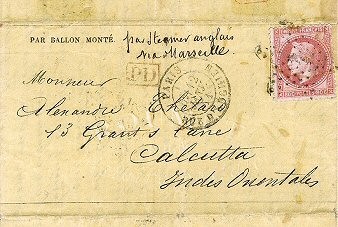 PAR BALLON MONTÉ.
par Steamer anglais
via Marseille.
PD
PARIS
Monsieur
Alexandre Chetard
13 Grant's Lane
Calcutta
Indes Orientales